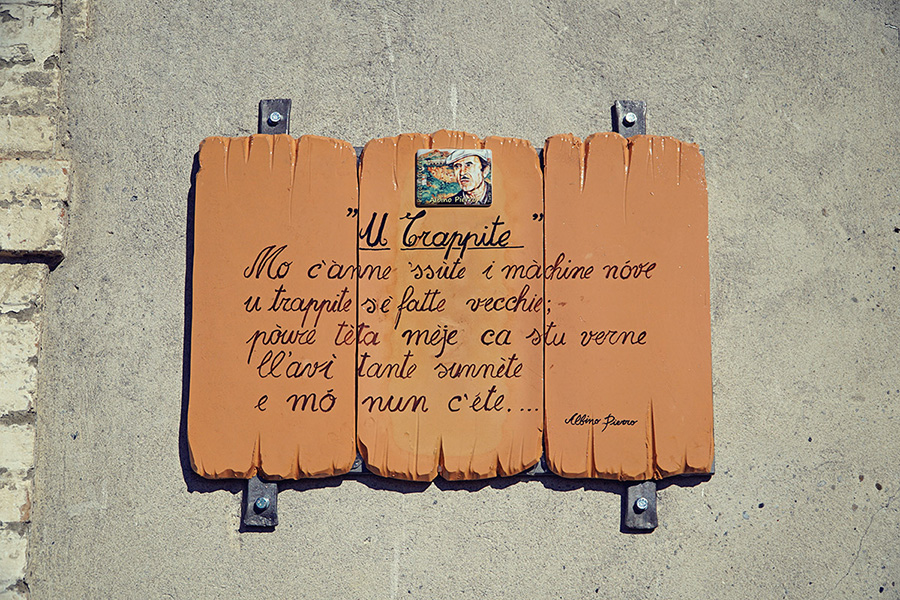 Albino Pierro
"U Trappite"
Mo c'ànne 'ssùte i màchine nóve
u trappite s'é fatte vecchie;
pòure tèta mèje ca stu verne
ll'avì tante sunnète
e mó nun c'éte....
Albino Pierro